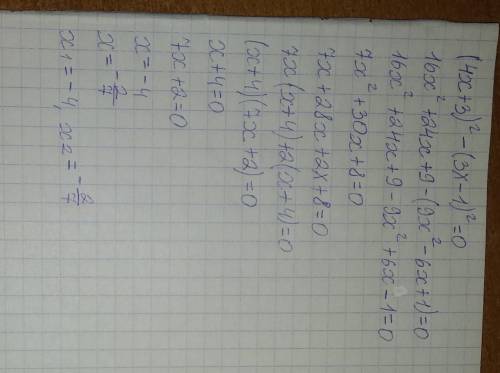 (4x+3)²-(3x-1)²=0
16x²+24x+9-(9x²-6x+1)=0
16x²+24x+9-9x²+6x-1=0
7x²+30x+8=0
7x+28x+2x+8=0
7x(x+4)+2(x+4)=0
(x+4)(7x+2)=0
x+4=0
7x+2=0
x=-4
x=-2/7
x1=-4, x2=-2/7